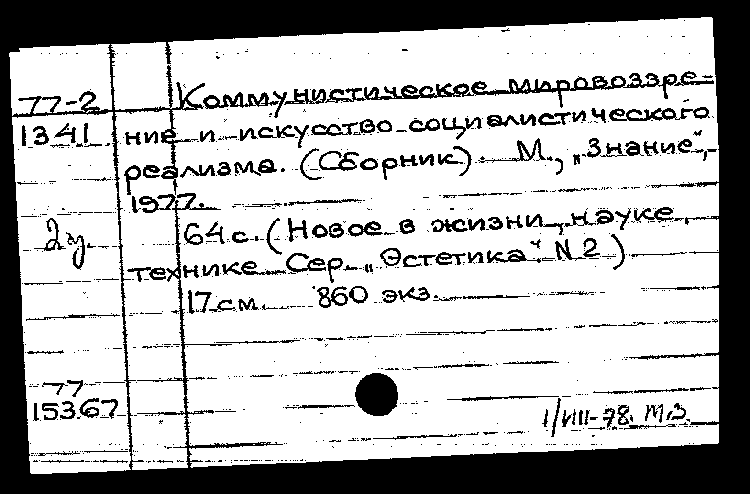 77-2
1341
Коммунистическое мировоззре-
ние и искусство социалистического
реализма. (Сборник). М., „Знание",
1977.
2у.
64с. (Новое в жизни, науке,
технике. Сер. „Эстетика". N2)
17см. 860 экз.
77
15367
1/VIII-78. М.З.